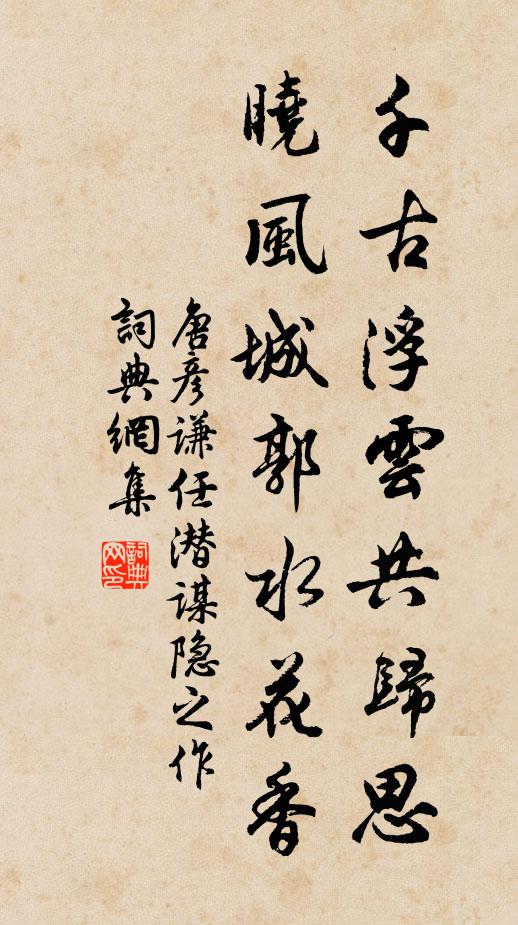 千古浮雲共歸思
曉風城郭水花香
唐彥谦任潜谋隐之作
詞典網集
詞典网印